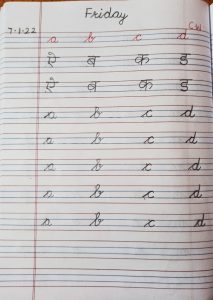 Friday
7-1-22 C.W
a b c d
ऐ ब क ड
ऐ ब क ड
a b c d
a b c d
a b c d
a b c d
a b c d